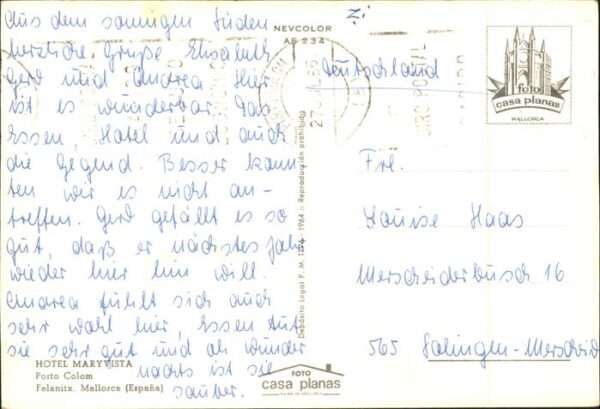 Aus dem sonnigen Süden
herzliche Grüße Elisabeth
Gerd und Andrea Hier
ist es wunderbar. Das
Essen, Hotel und auch
die Gegend. Besser konn-
ten wir es nicht an-
treffen. Gerd gefällt es so
gut, daß er nächstes Jahr
wieder hier hin will.
Andrea fühlt sich auch
sehr wohl hier, Essen tut
sie sehr gut und oh wunder
nachts ist sie
sauber.
HOTEL MARYVISTA
Porto Colom
Felanitx. Mallorca (España)
NEVCOLOR
AF 234
Depósito Legal P. M. 1964 - Reproducción prohibida
FOTO
casa planas
Deutschland
foto
casa planas
MALLORCA
Frl.
Louise Haas
Merscheiderbusch 16
565 Solingen-Merscheid